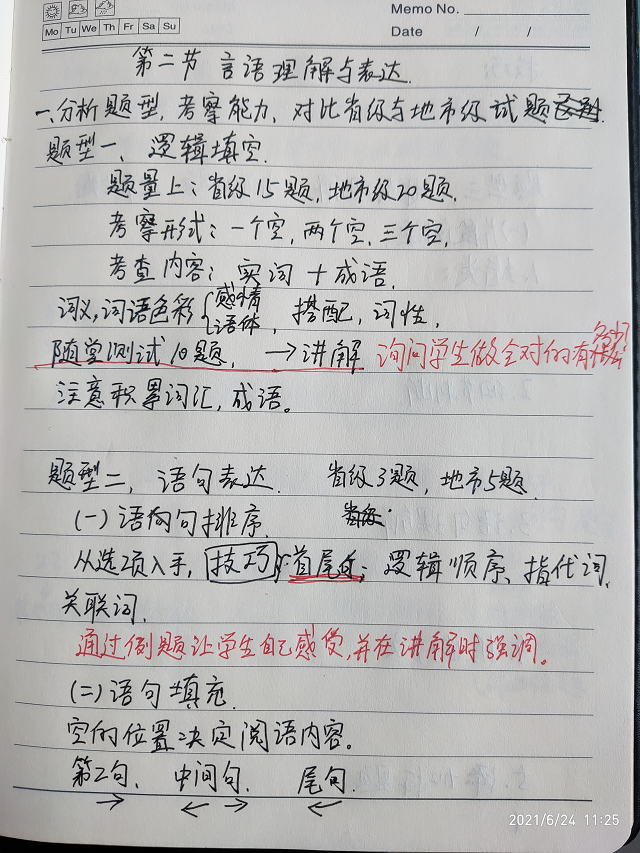 Memo No.
Mo Tu We Th Fr Sa Su
Date / /
第二节 言语理解与表达.
一、分析题型, 考察能力, 对比省级与地市级试题
题型一、逻辑填空.
题量上: 省级15题, 地市级20题.
考察形式: 一个空, 两个空, 三个空.
考查内容: 实词+成语.
词义, 词语色彩{感情 语体, 搭配, 词性.
随堂测试10题, →讲解 询问学生做全对的有多少
注意积累词汇, 成语。
题型二, 语句表达. 省级3题, 地市5题.
(一)语句排序.
从选项入手, 技巧: 首尾句; 逻辑顺序、指代词,
关联词.
通过例题让学生自己感受, 并在讲解时强调。
(二)语句填充.
空的位置决定阅语内容。
第一句、 中间句、 尾句.
→ ← → ←
2021/6/24 11:25